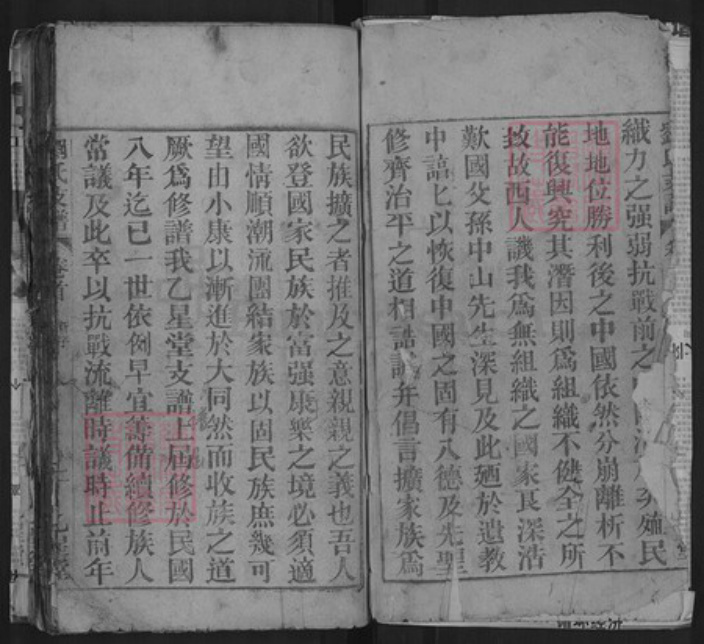 織力之强弱抗戰前之
地地位勝利後之中國依然分崩離析不
能復興究其潛因則爲組織不健全之所
致故西人譏我爲無組織之國家良深浩
歎國父孫中山先生深見及此廼於遺教
中諄匕以恢復中國之固有八德及先聖
修齊治平之道相誥誡并倡言擴家族爲
民族擴之者推及之意親親之義也吾人
欲登國家民族於富强康樂之境必須適
國情順潮流團結家族以固民族庶幾可
望由小康以漸進於大同然而收族之道
厥爲修譜我乙星堂支譜上屆修於民國
八年迄已一世依例早宜籌備續修族人
常議及此卒以抗戰流離時議時止前年
支譜 卷首